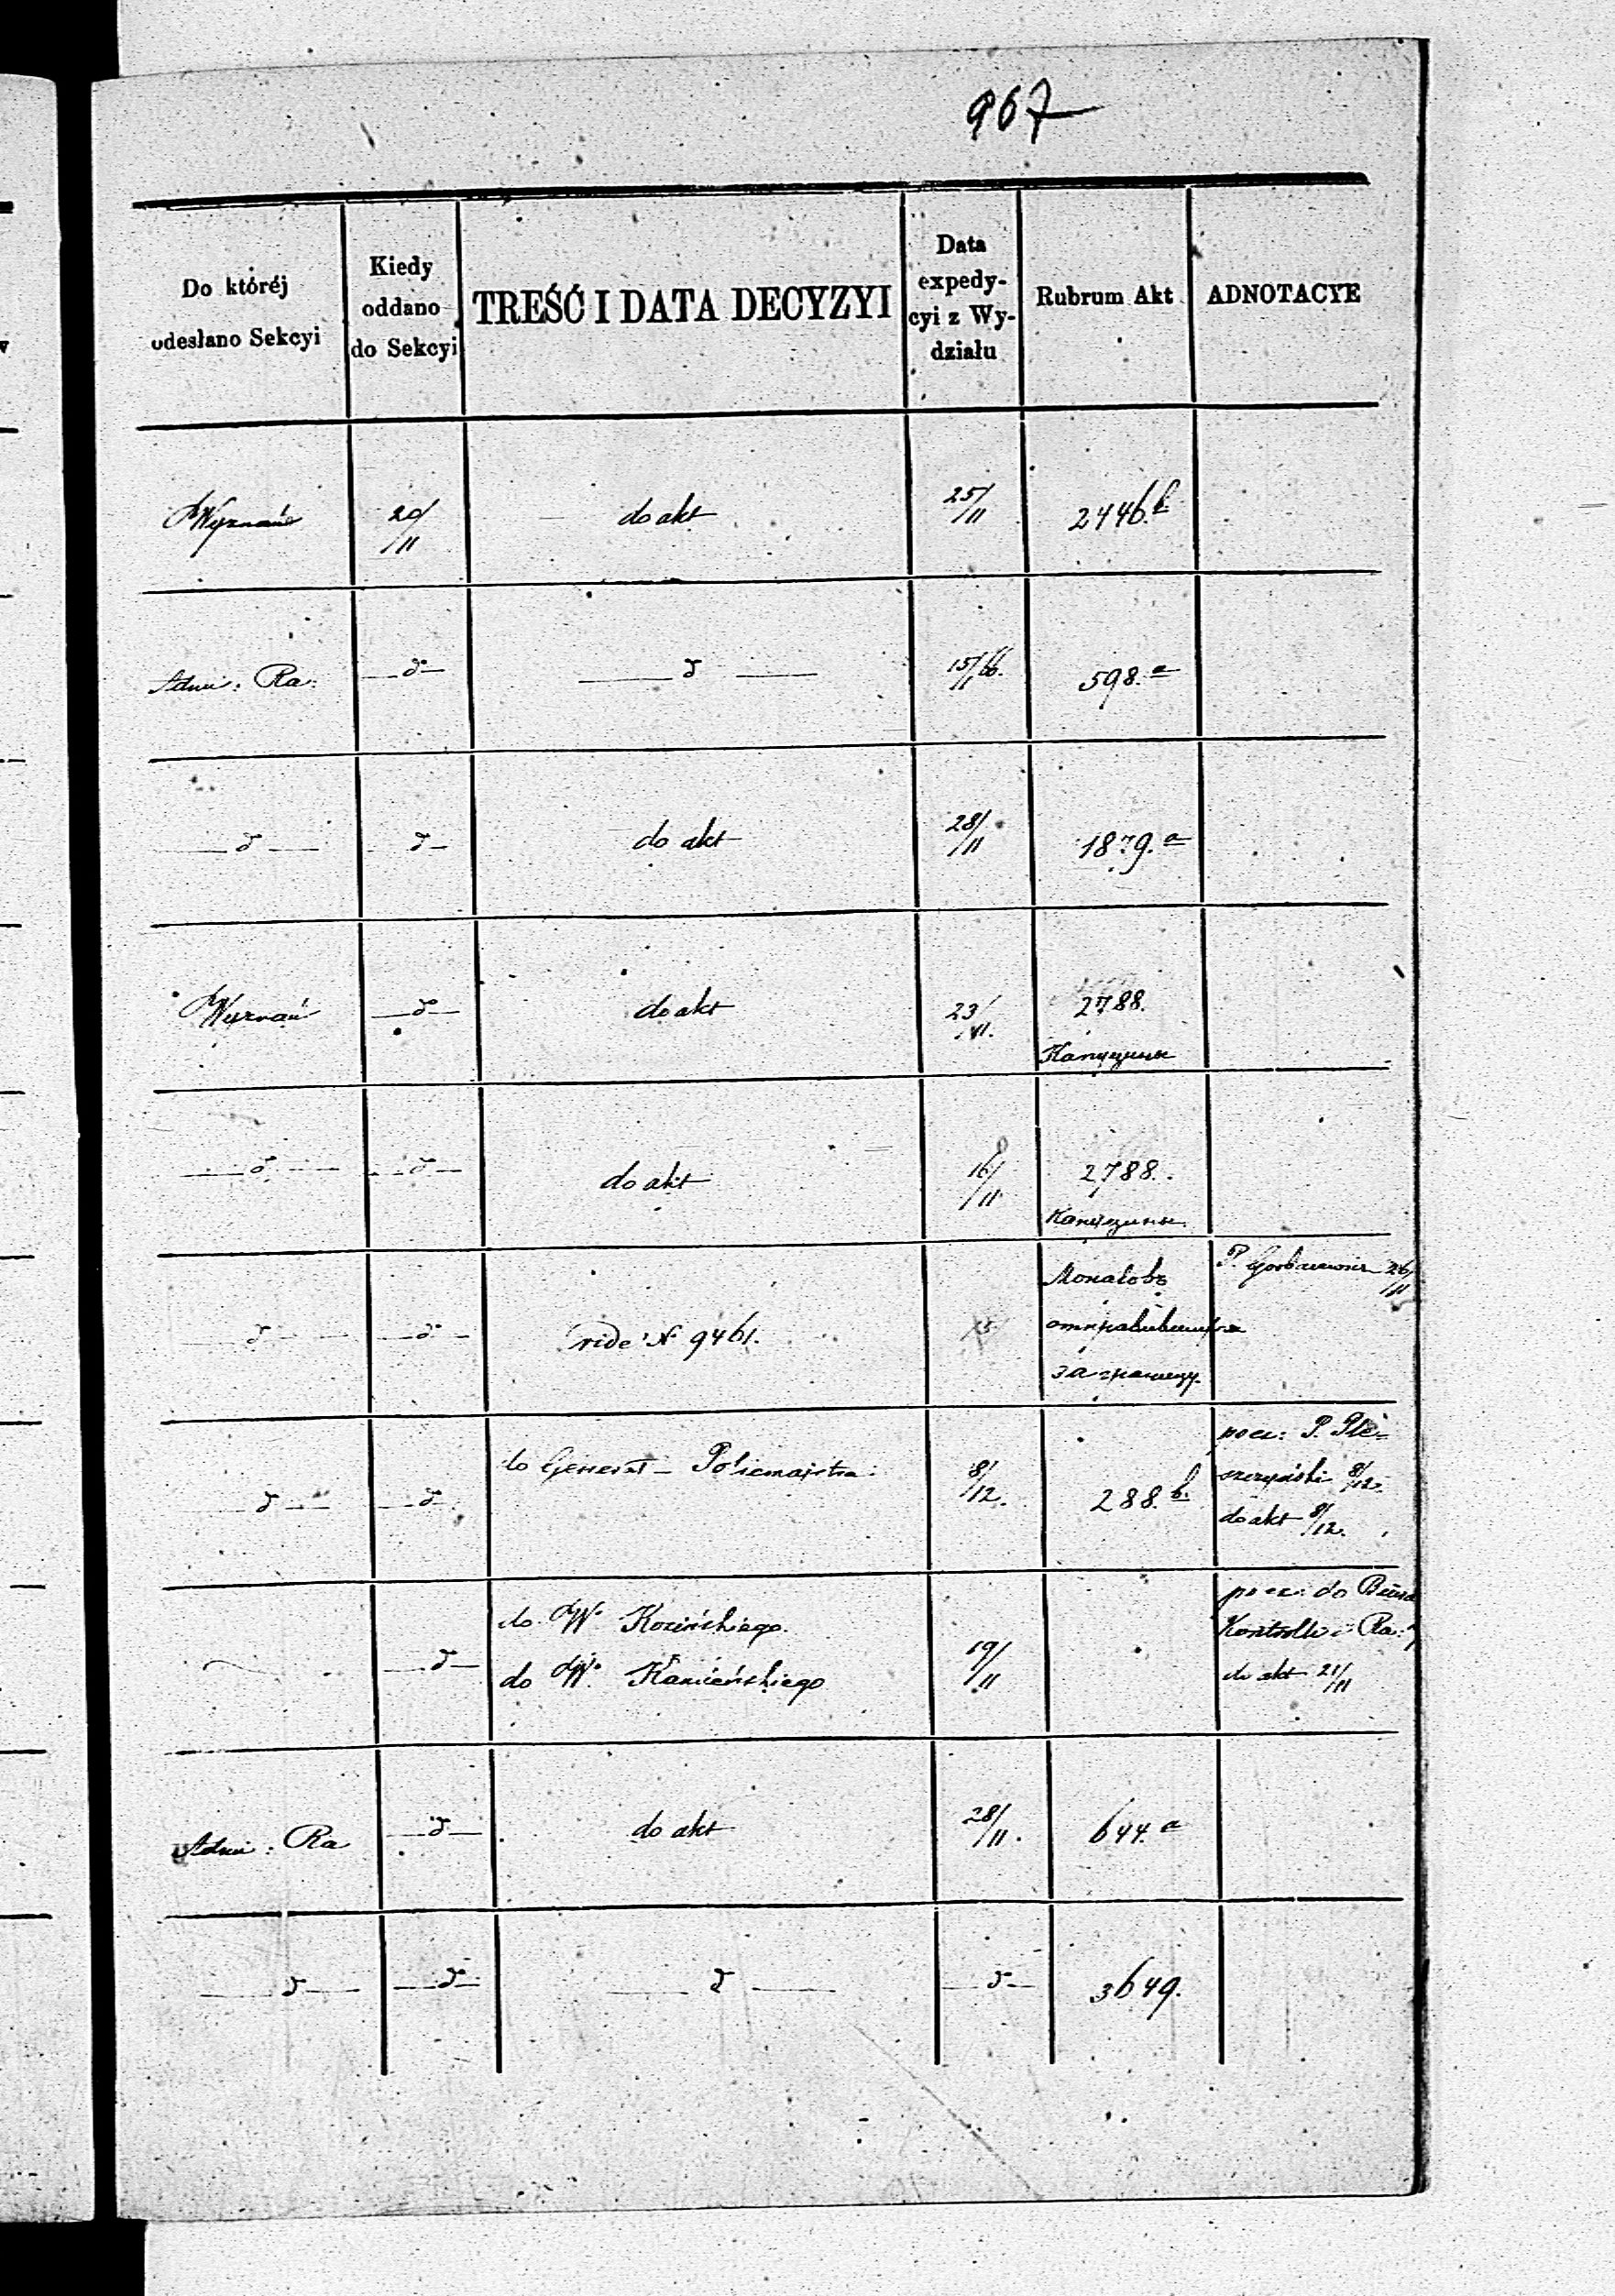 967
Do któréj odesłano Sekcyi | Kiedy oddano do Sekcyi | TREŚĆ I DATA DECYZYI | Data expedycyi z Wydziału | Rubrum Akt | ADNOTACYE
Wyznań | 20/11 | do akt | 25/11 | 2446.b
Adm: Ra: | —d°— | — d° — | 15/11 66. | 598.a
— d° — | d°— | do akt | 28/11 | 1879.a
Wyznań | —d°— | do akt | 23/VI. | 2788.
Капуцины
— d° — | —d°— | do akt | 16/11 | 2788.
Капуцины
— d° — | —d°— | vide N 9461. | Монаховъ | P. 26/11
отправившихся
за границу.
— d° — | —d°— | do Generał-Policmajstra: | 8/12. | 288.b. | pocz: P. Ple-
szczyński 8/12.
do akt 8/12.
—d°— | do W° Kozińskiego. | 19/11 | pocz: do Biura
do W° Kamieńskiego | Kontrolli Ra:
do akt 21/11
Adm: Ra | —d°— | do akt | 28/11. | 644.a
— d° — | —d°— | — d° — | —d°— | 3649.